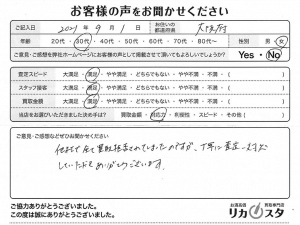 お客様の声をお聞かせください
ご記入日 2021年9月1日 お住いの都道府県 大阪府
年齢 20代・30代・40代・50代・60代・70代・80代〜 性別 男・女
ご意見・ご感想を弊社ホームページにお客様の声として掲載させて頂いてもよろしいでしょうか? Yes・No
査定スピード 大満足・満足・やや満足・どちらでもない・やや不満・不満・( )
スタッフ接客 大満足・満足・やや満足・どちらでもない・やや不満・不満・( )
買取金額 大満足・満足・やや満足・どちらでもない・やや不満・不満・( )
当店をお選びいただきました決め手は? 買取金額・対応力・利便性・スピード・その他( )
ご意見・ご感想などぜひお聞かせください
他社で全て買取拒否されていたのですが、丁寧に査定、対応
していただきありがとうございます。
ご協力ありがとうございました。
この度は誠にありがとうございました。
お酒高価買取専門店
リカスタ